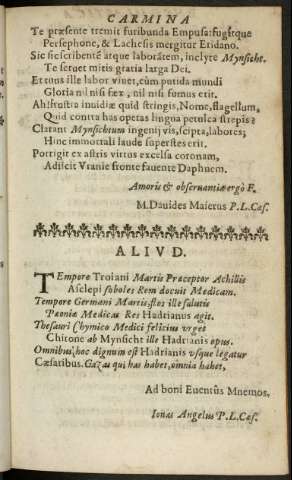 CARMINA
Te præsente tremit furibunda Empusa: fugitque
Persephone, & Lachesis mergitur Eridano.
Sic sic scribente atque laborâtem, inclyte Mynsicht.
Te servet mitis gratia larga Dei.
Et tuus ille labor vivet, cùm putida mundi
Gloria nil nisi fex, nil nisi fumus erit.
Ah! frustra invidiæ quid stringis, Nome, flagellum,
Quid contra has opetas lingua petulca strepis?
Clarant Mynsichtum ingenij vis, scripta, labores;
Hinc immortali laude superstes erit.
Porrigit ex astris virtus excelsa coronam,
Adiicit Vranie fronte favente Daphnem.
Amoris & observantiæ ergò F.
M. Davides Maierus P. L. Cæs.
ALIVD.
TEmpore Troiani Martis Præceptor Achillis
Asclepi soboles Rem docuit Medicam.
Tempore Germani Martis flos ille salutis
Pæoniæ Medicas Res Hadrianus agit.
Thesauri Chymico Medici felicius vrget
Chitone ab Mynsicht ille Hadrianis opus.
Omnibus, hoc dignum est Hadrianis vsque legatur
Cæsatibus. Gazas qui has habet, omnia habet,
Ad boni Eventûs Mnemos.
Ionas Angelus P. L. Cæs.